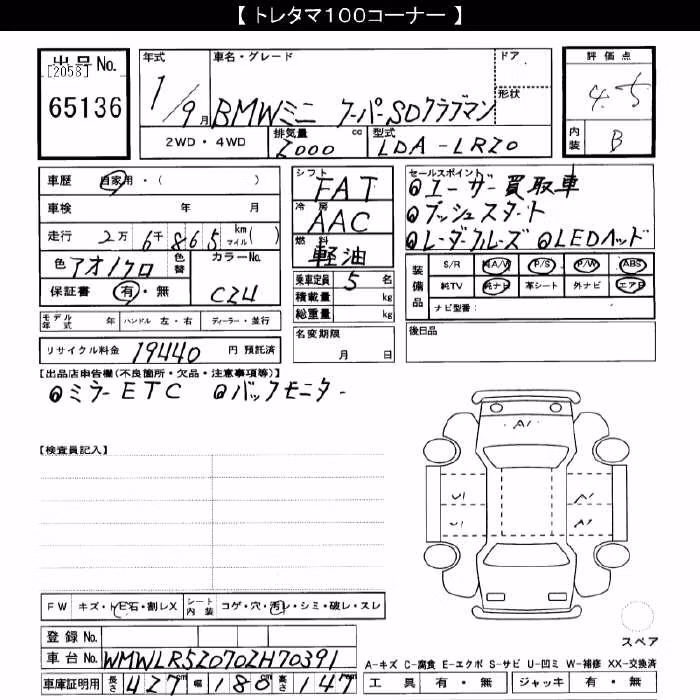 【 トレタマ100コーナー 】
出品No.
[2058]
65136
年式
1/9月
車名・グレード
BMWミニ クーパーSDクラブマン
ドア
形状
2WD・4WD
排気量 2000 cc
型式 LDA-LR20
評価点
4.5
内装 B
車歴 自家用・( )
車検 年 月
走行 2万6千865 km マイル( )
色 アオ/クロ
色替
カラーNo. C2U
保証書 有・無
シフト FAT
冷房 AAC
燃料 軽油
乗車定員 5 名
積載量 kg
総重量 kg
名変期限 月 日
セールスポイント
◎ユーザー買取車
◎プッシュスタート
◎レーダークルーズ ◎LEDヘッド
装備品
S/R 純A/W P/S P/W ABS
純TV 純ナビ 革シート 外ナビ エアB
ナビ型番:
後日品
モデル年式 年 ハンドル 左・右 ディーラー・並行
リサイクル料金 19440 円 預託済
【出品店申告欄(不良箇所・欠品・注意事項等)】
◎ミラーETC ◎バックモニター
【検査員記入】
A1
U1 A1
U1 A1
FW キズ・トビ石・割レX シート内装 コゲ・穴・汚レ・シミ・破レ・スレ
スペア
登録No.
車台No. WMWLR5Z070ZH70391
A-キズ C-腐食 E-エクボ S-サビ U-凹ミ W-補修 XX-交換済
車庫証明用 長さ 427cm 幅 180cm 高さ 147cm
工具 有・無 ジャッキ 有・無